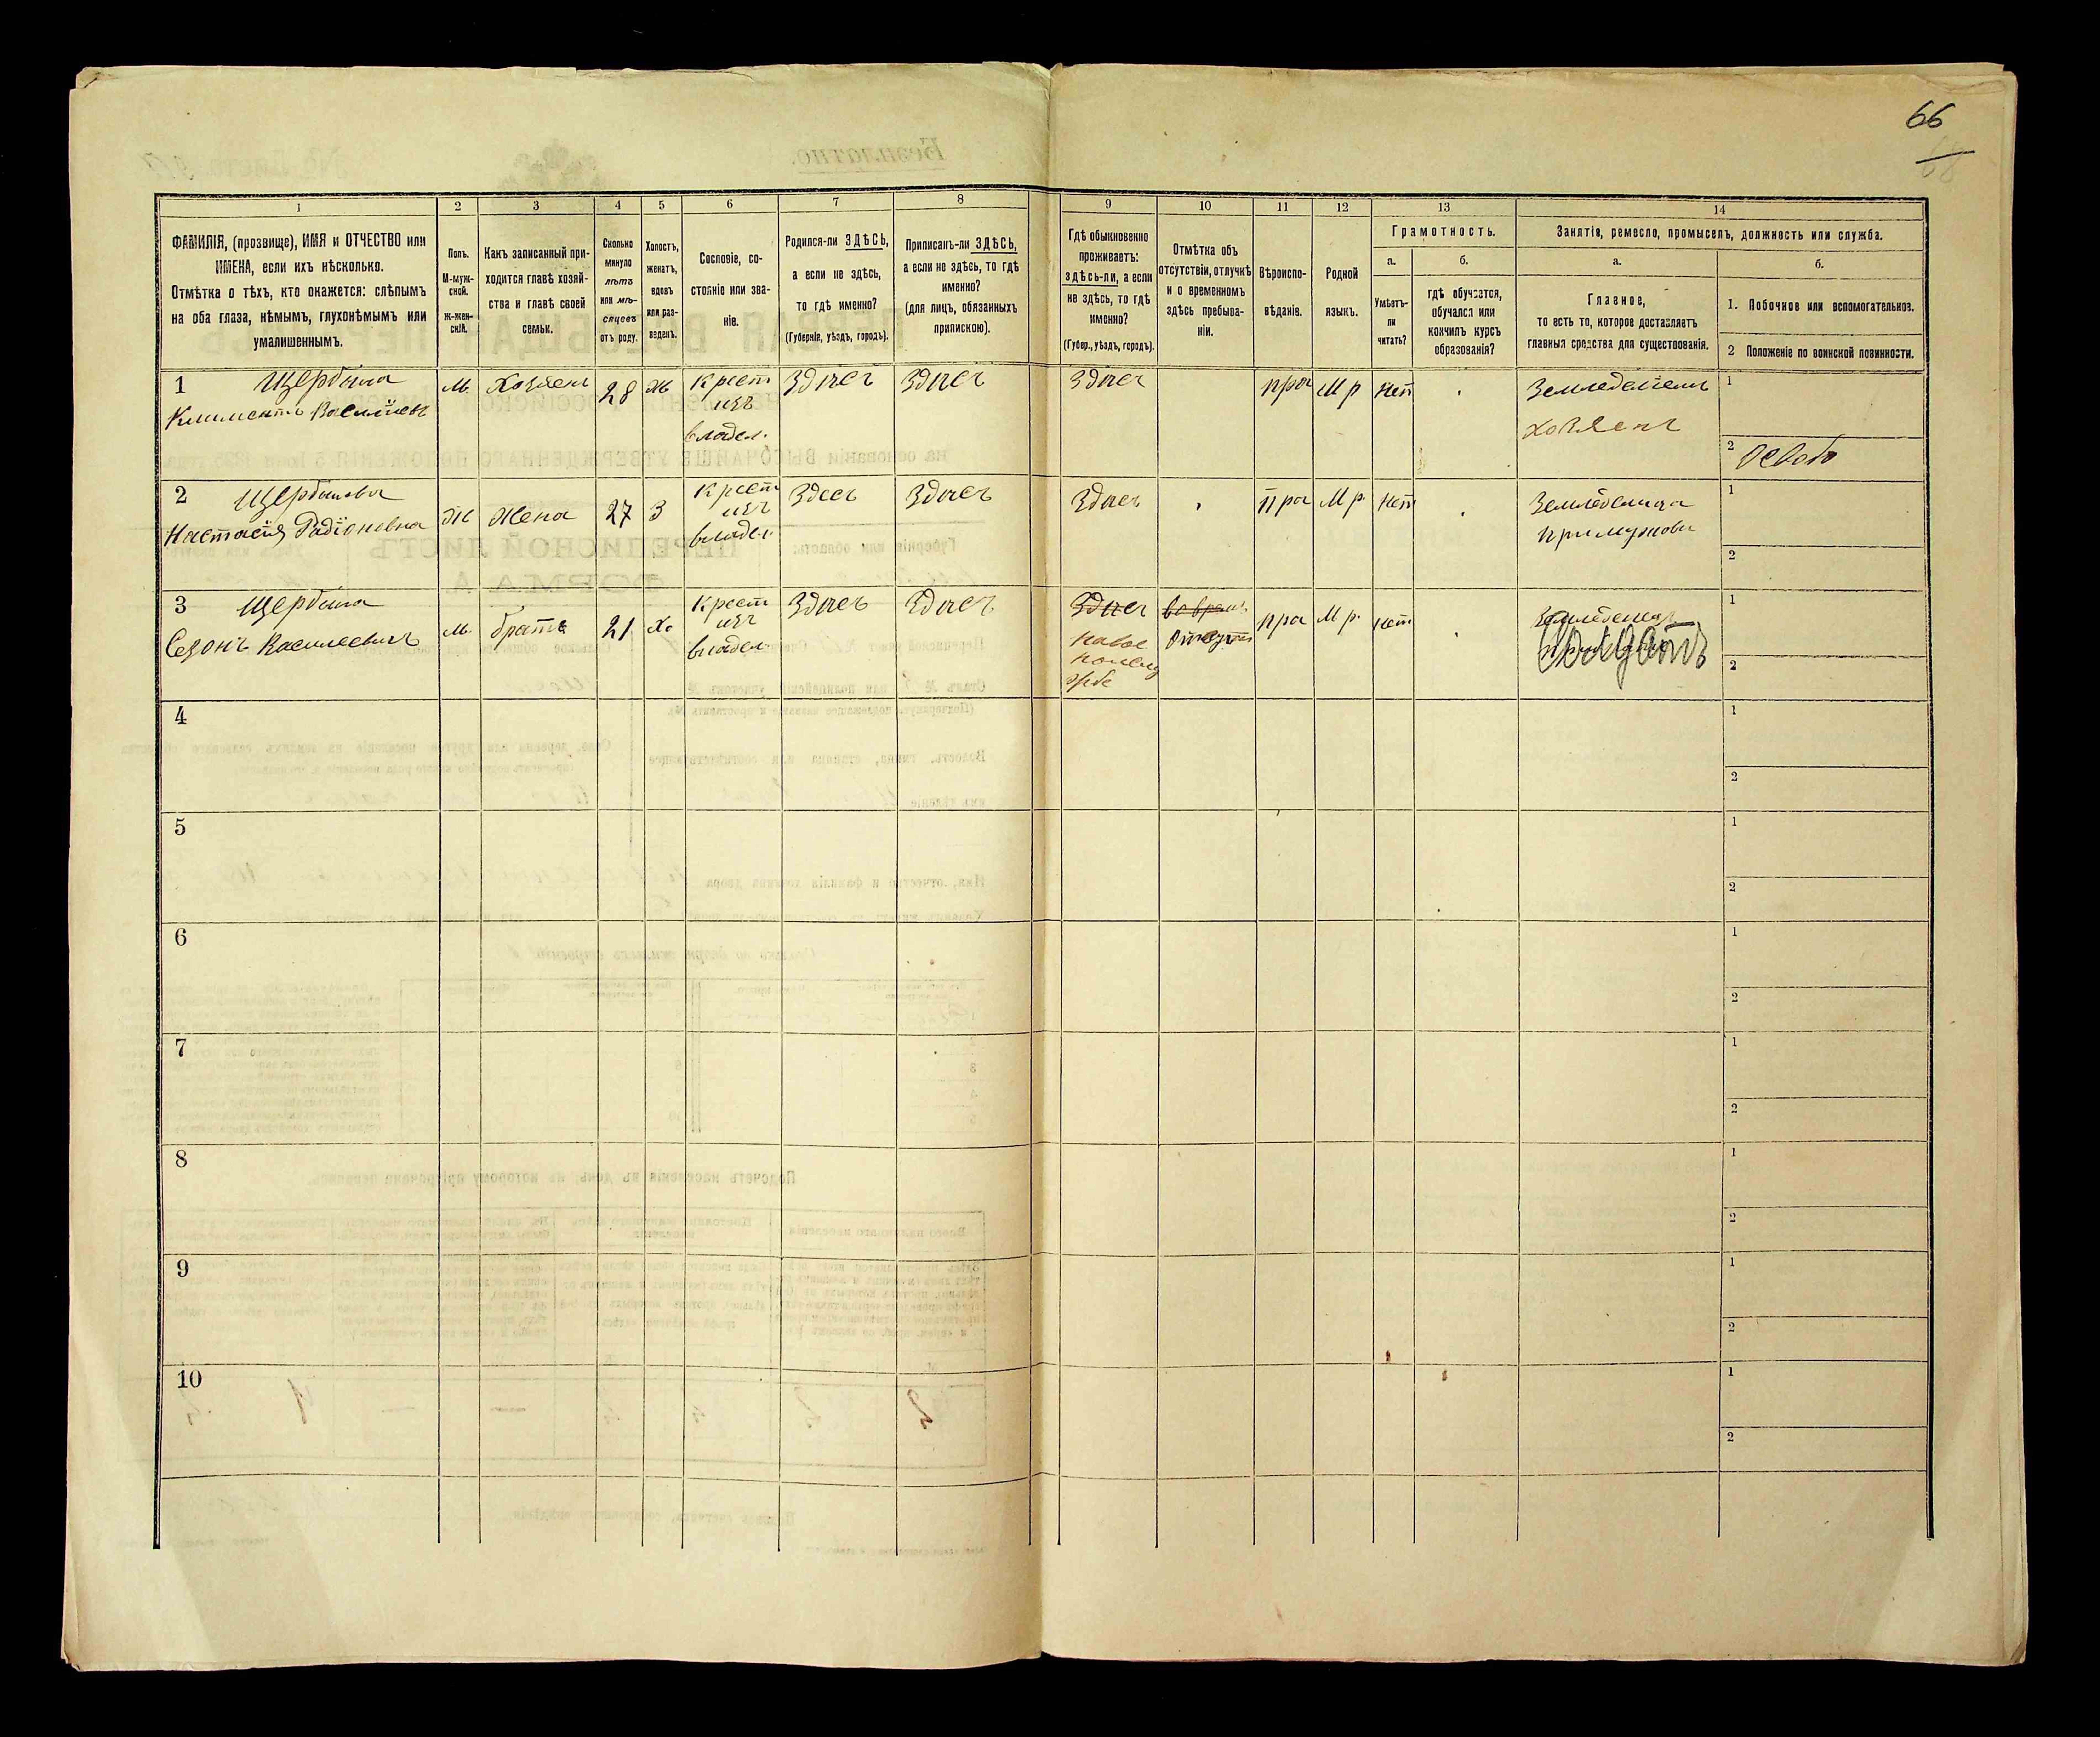 66
68
1 2 3 4 5 6 7 8 9 10 11 12 13 14
ФАМИЛІЯ, (прозвище), ИМЯ и ОТЧЕСТВО или
ИМЕНА, если ихъ нѣсколько.
Отмѣтка о тѣхъ, кто окажется: слѣпымъ
на оба глаза, нѣмымъ, глухонѣмымъ или
умалишеннымъ.
Полъ.
М-муж-
ской.
Ж-жен-
скій.
Какъ записанный при-
ходится главѣ хозяй-
ства и главѣ своей
семьи.
Сколько
минуло
лѣтъ
или мѣ-
сяцевъ
отъ роду.
Холостъ,
женатъ,
вдовъ
или раз-
веденъ.
Сословіе, со-
стояніе или зва-
ніе.
Родился-ли ЗДѢСЬ,
а если не здѣсь,
то гдѣ именно?
(Губернія, уѣздъ, городъ).
Приписанъ-ли ЗДѢСЬ,
а если не здѣсь, то гдѣ
именно?
(для лицъ, обязанныхъ
припискою).
Гдѣ обыкновенно
проживаетъ:
здѣсь-ли, а если
не здѣсь, то гдѣ
именно?
(Губер., уѣздъ, городъ).
Отмѣтка объ
отсутствіи, отлучкѣ
и о временномъ
здѣсь пребыва-
ніи.
Вѣроиспо-
вѣданіе.
Родной
языкъ.
Грамотность.
а.
Умѣетъ-
ли
читать?
б.
гдѣ обучается,
обучался или
кончилъ курсъ
образованія?
Занятія, ремесло, промыселъ, должность или служба.
а.
Главное,
то есть то, которое доставляетъ
главныя средства для существованія.
б.
1. Побочное или вспомогательное.
2 Положеніе по воинской повинности.
1 Щербина
Климентъ Василіев
м.
Хозяенъ
28
Ж
Крест
изъ
владел.
Здѣсъ
Здѣсъ
Здѣсъ
пра
М р
нет
Земледелецъ
хозяенъ
1
2
2 Щербинова
Настасія Радіоновна
Ж
Жена
27
З
Крест
изъ
владел.
Здесь
Здѣсъ
Здѣсъ
пра
М р.
нет
Земледелица
при мужови
1
2
3 Щербина
Созонъ Василеевичъ
м.
братъ
21
Хо
Крест
изъ
владел
Здѣсъ
Здѣсъ
Здѣсъ
пра
М р.
нет
Солдатъ
1
2
4
1
2
5
1
2
6
1
2
7
1
2
8
1
2
9
1
2
10
1
2